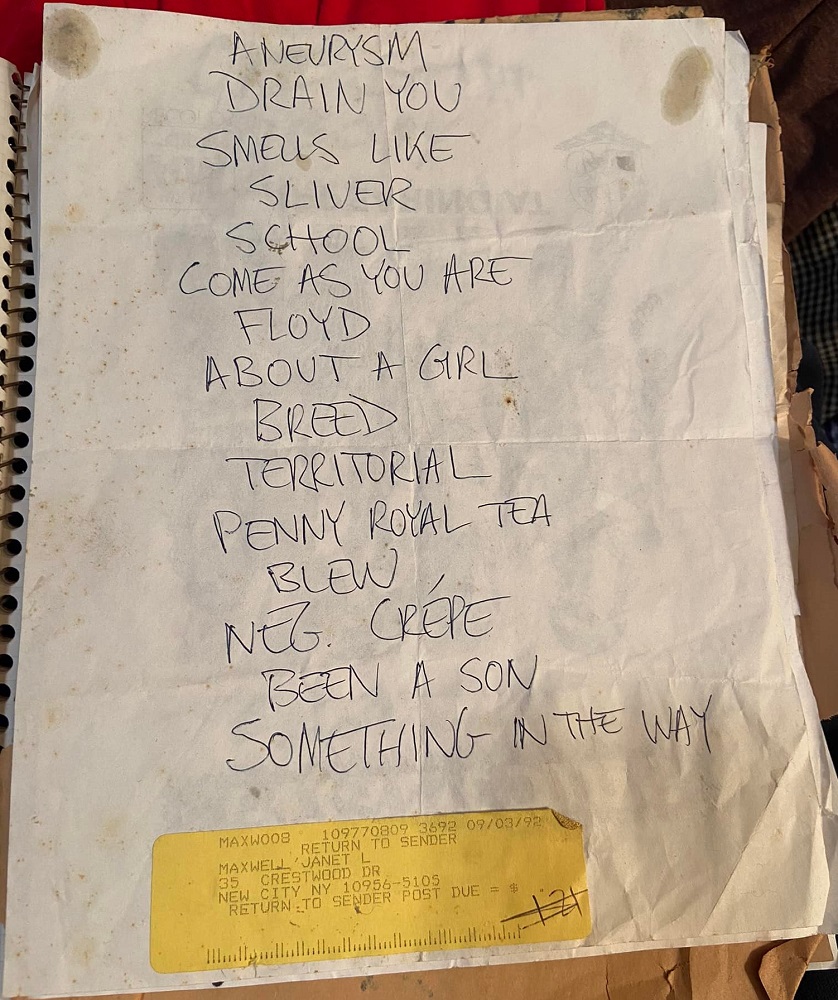 ANEURYSM
DRAIN YOU
SMELLS LIKE
SLIVER
SCHOOL
COME AS YOU ARE
FLOYD
ABOUT A GIRL
BREED
TERRITORIAL
PENNY ROYAL TEA
BLEW
NEG. CRÉPE
BEEN A SON
SOMETHING IN THE WAY
MAXW008 109770809 3692 09/03/92
RETURN TO SENDER
MAXWELL'JANET L
35 CRESTWOOD DR
NEW CITY NY 10956-5105
RETURN TO SENDER POST DUE = $